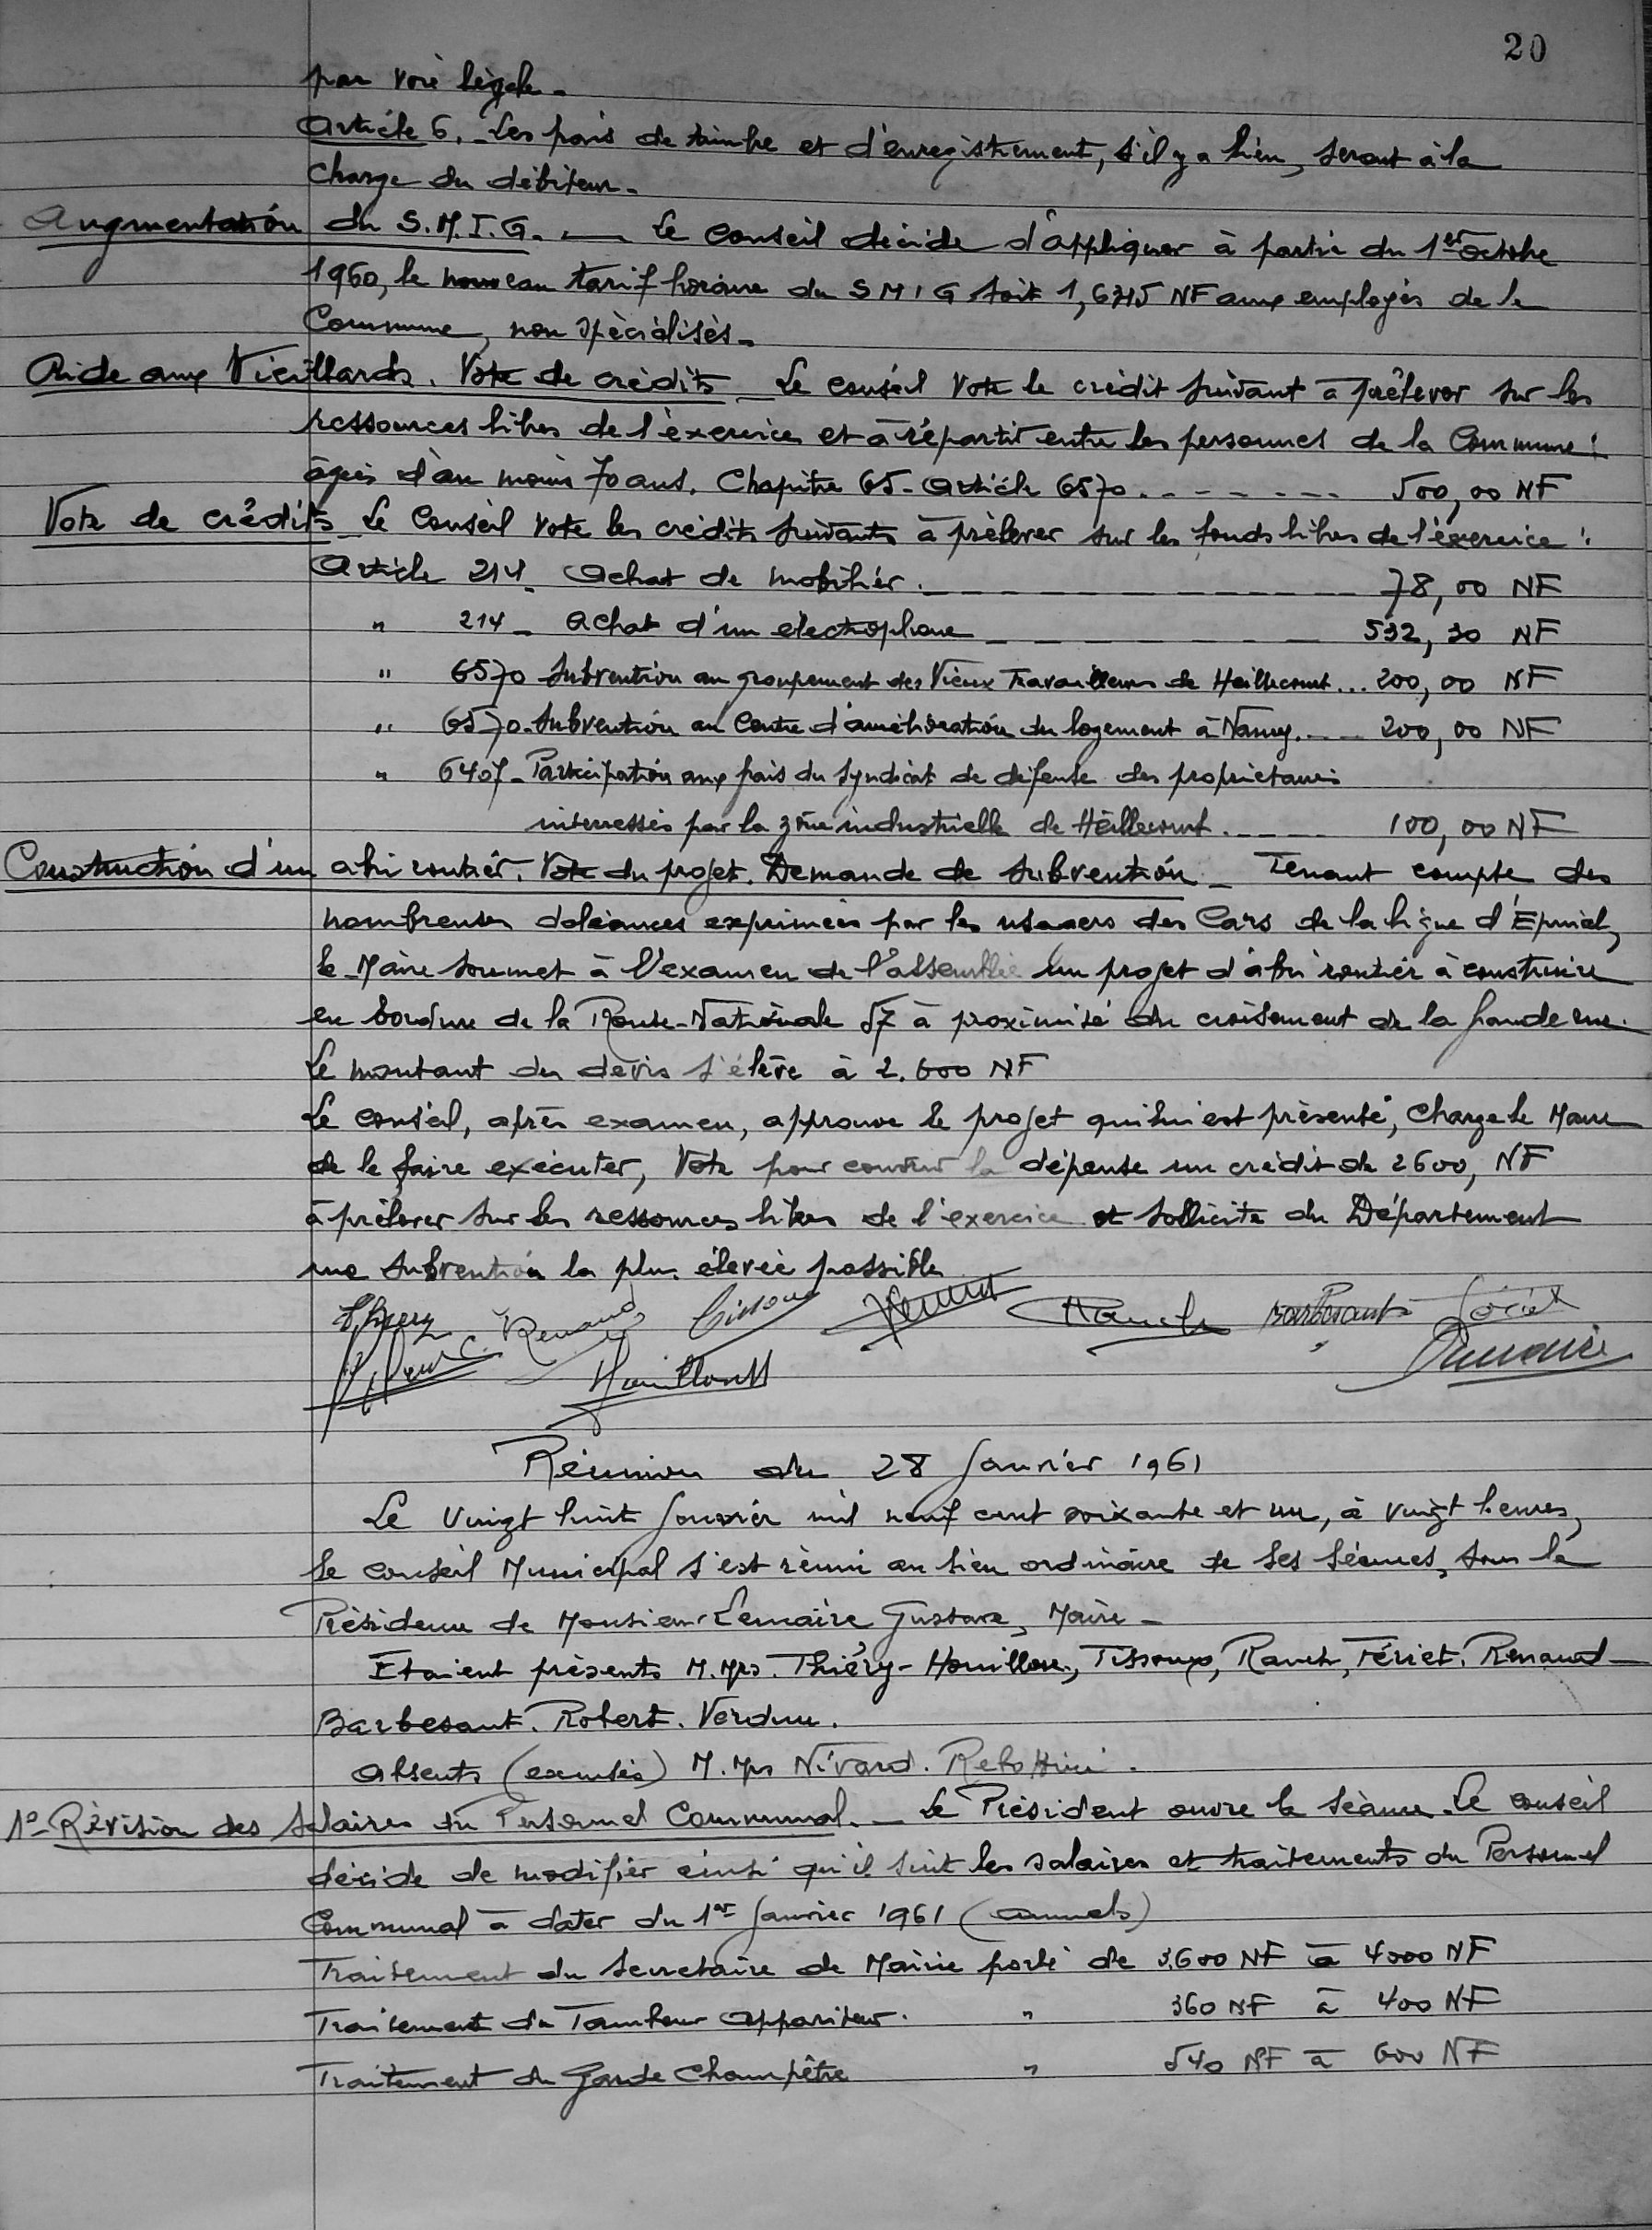 20
par voie légale.
Article 6. - Les frais de timbre et d'enregistrement, s'il y a lieu, seront à la
charge du débiteur.
Augmentation du S.M.I.G. — Le Conseil décide d'appliquer à partir du 1er Octobre
1960, le nouveau tarif horaire du SMIG soit 1,6215 NF aux employés de la
Commune, non spécialisés.
Aide aux Vieillards. Vote de crédits - Le conseil vote le crédit suivant à prélever sur les
ressources libres de l'exercice et à répartir entre les personnes de la Commune :
âgées d'au moins 70 ans. Chapitre 65 - Article 6570 - - - - - - - 500,00 NF
Vote de crédits - Le Conseil vote les crédits suivants à prélever sur les fonds libres de l'exercice :
Article 214 - Achat de mobilier. - - - - - - - - - - 78,00 NF
" 214 - Achat d'un électrophone - - - - - - - - 532,30 NF
" 6570 Subvention au groupement des Vieux Travailleurs de Heillecourt ... 200,00 NF
" 6570. Subvention au Centre d'amélioration du logement à Nancy. - - 200,00 NF
" 6407 - Participation aux frais du Syndicat de défense des propriétaires
interressés par la zône industrielle de Heillecourt. - - - - 100,00 NF
Construction d'un abri routier. Vote du projet. Demande de Subvention - Tenant compte des
nombreuses doléances exprimées par les usagers des Cars de la ligne d'Epinal,
le Maire soumet à l'examen de l'assemblée un projet d'abri routier à construire
en bordure de la Route-Nationale 57 à proximité du croisement de la grande rue.
Le montant du devis s'élève à 2.600 NF
Le conseil, après examen, approuve le projet qui lui est présenté, charge le Maire
de le faire exécuter, Vote pour couvrir la dépense un crédit de 2600, NF
à prélever sur les ressources libres de l'exercice et sollicite du Département
une subvention la plus élevée possible
Thiery C. Renaud Tissoux Rauch Barbesant Fériet
Houillon Lemaire
Réunion du 28 Janvier 1961
Le Vingt huit Janvier mil neuf cent soixante et un, à vingt heures,
le Conseil Municipal s'est réuni au lieu ordinaire de ses séances, sous la
Présidence de Monsieur Lemaire Gustave, Maire -
Etaient présents M. Mrs. Thiéry - Houillon, Tissoux, Rauch, Fériet. Renaud -
Barbesant. Robert. Verdun.
Absents (excusés) M. Mrs Nivard. Rebottini.
1°- Révision des Salaires du Personnel Communal. — Le Président ouvre la séance. Le conseil
décide de modifier ainsi qu'il suit les salaires et traitements du Personnel
Communal à dater du 1er Janvier 1961 (annuels)
Traitement du Secrétaire de Mairie porté de 3.600 NF à 4000 NF
Traitement du Tambour Appariteur. " 360 NF à 400 NF
Traitement du Garde Champêtre " 540 NF à 600 NF